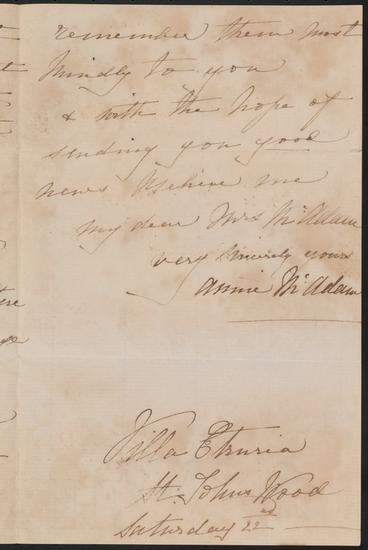 remember them most
kindly to you
& with the hope of
sending you good
news believe me
my dear Mrs McAdam
very sincerely yours
Annie McAdam
Villa Etruria
St. Johns Wood
Saturday 22nd